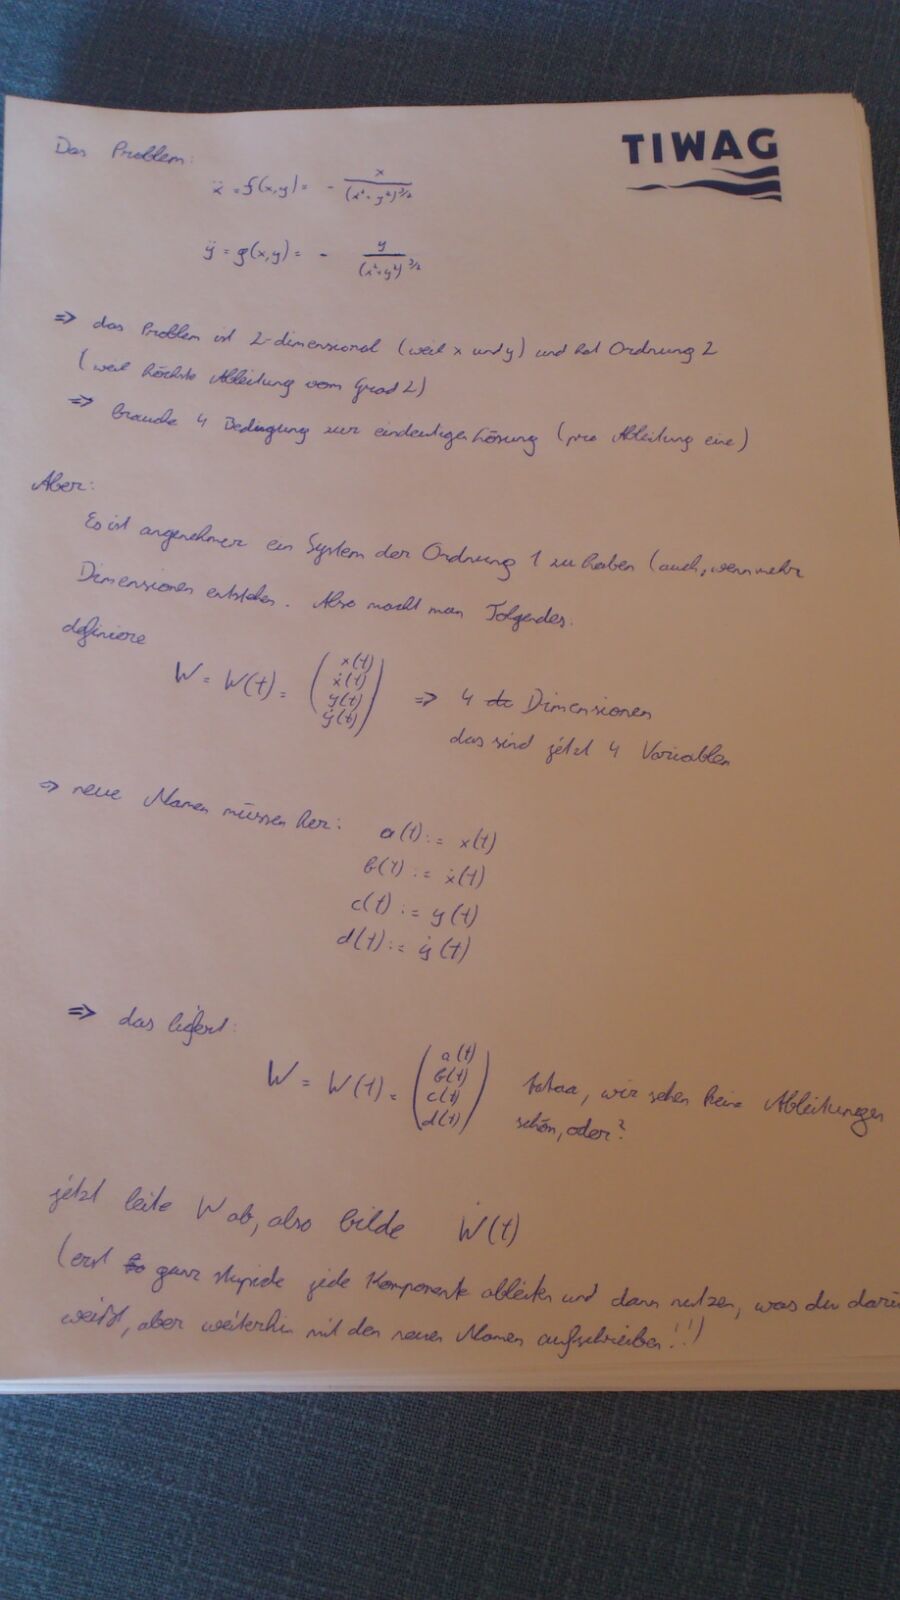 TIWAG
Das Problem:
ẍ = f(x,y) = - x / (x²+y²)^3/2
ÿ = g(x,y) = - y / (x²+y²)^3/2
⇒ das Problem ist 2-dimensional (weil x und y) und hat Ordnung 2
(weil höchste Ableitung vom Grad 2)
⇒ brauche 4 Bedingung zur eindeutigen Lösung (pro Ableitung eine)
Aber:
Es ist angenehmer ein System der Ordnung 1 zu haben (auch, wenn mehr
Dimensionen entstehen. Also macht man Folgendes:
definiere
W = W(t) = ( x(t) ẋ(t) y(t) ẏ(t) ) ⇒ 4 Dimensionen
das sind jetzt 4 Variablen
⇒ neue Namen müssen her: a(t) := x(t)
b(t) := ẋ(t)
c(t) := y(t)
d(t) := ẏ(t)
⇒ das liefert:
W = W(t) = ( a(t) b(t) c(t) d(t) ) tataa, wir sehen keine Ableitungen
schön, oder?
jetzt leite W ab, also bilde Ẇ(t)
(erst ganz stupide jede Komponente ableiten und dann nutzen, was du
weißt, aber weiterhin mit den neuen Namen aufschreiben!!!)